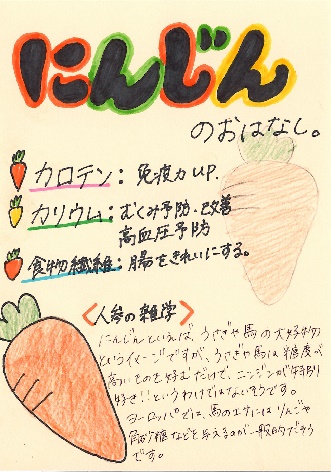 にんじん
のおはなし。
カロテン：免疫力UP.
カリウム：むくみ予防・改善
高血圧予防
食物繊維：腸をきれいにする。
<人参の雑学>
にんじんといえば、うさぎや馬の大好物
というイメージですが、うさぎや馬は糖度の
高いものを好むだけで、ニンジンが特別
好き!!というわけではないそうです。
ヨーロッパでは、馬のエサにはりんごや
角砂糖などを与えるのが一般的だそう
です。